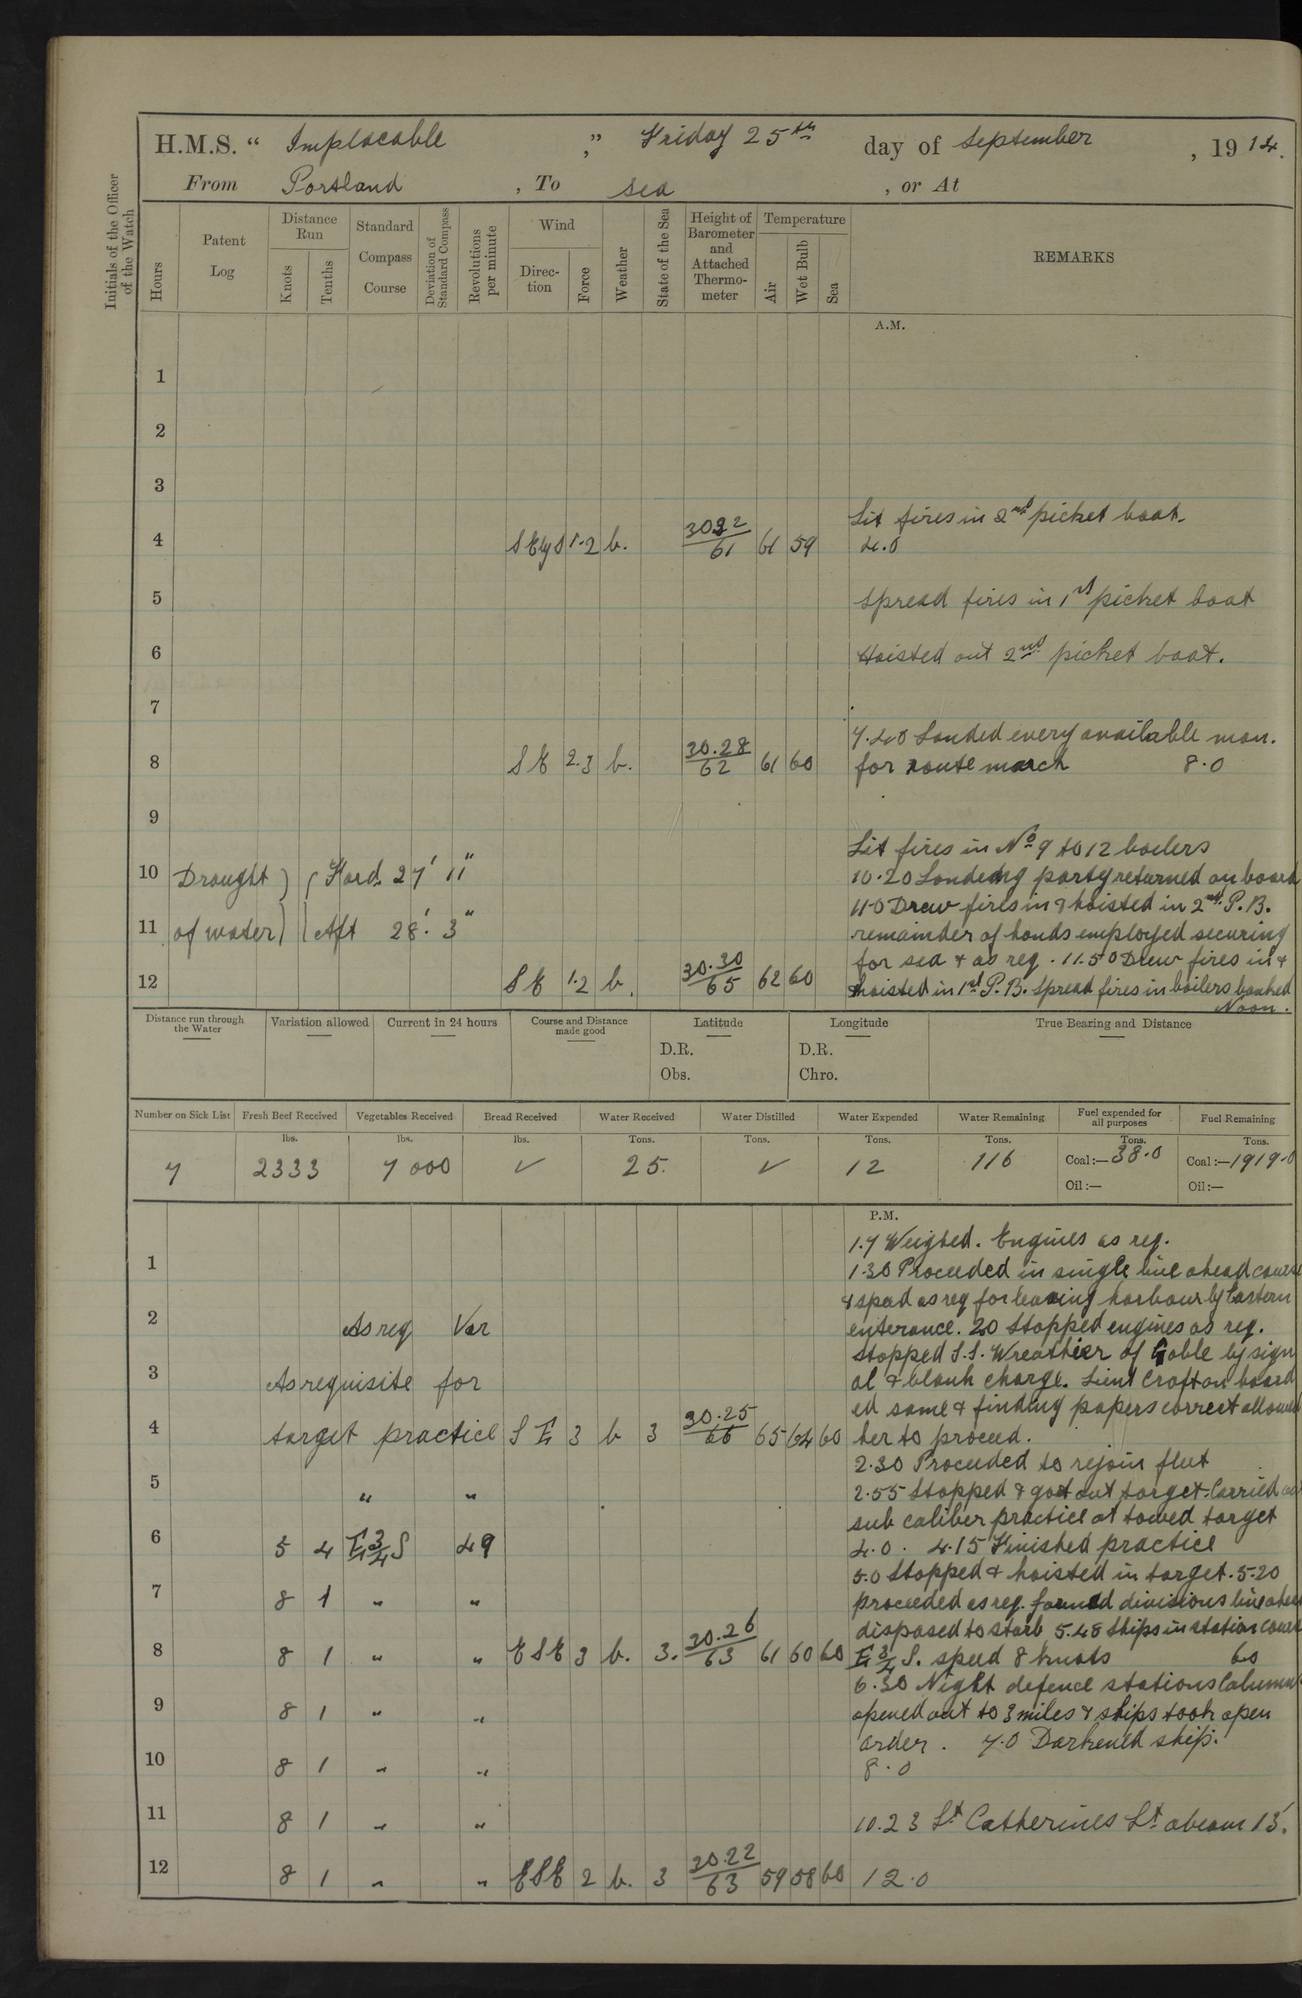 H.M.S. " Implacable ," Friday 25th day of September , 1914.
From Portland , To sea , or At
Initials of the Officer of the Watch
Hours
Patent Log
Distance Run
Knots
Tenths
Standard Compass Course
Deviation of Standard Compass
Revolutions per minute
Wind
Direction
Force
Weather
State of the Sea
Height of Barometer and Attached Thermometer
Temperature
Air
Wet Bulb
Sea
REMARKS
A.M.
1
2
3
Lit fires in 2nd picket boat.
4 SEly S 1.2 b. 61 61 59 4.0
5 Spread fires in 1st picket boat
6 Hoisted out 2nd picket boat.
7
7.40 Landed every available man.
8 SE 2.3 b. 30.28 62 61 60 for route march 8.0
9
Lit fires in No 9 to 12 boilers
10 Draught Ford. 27' 11" 10.20 Landing party returned on board
11.0 Drew fires in & hoisted in 2nd P.B.
11 of water Aft 28'. 3" remainder of hands employed securing
for sea & as req. 11.50 Drew fires in &
12 SE 1.2 b. 30.30 65 62 60 hoisted in 1st P.B. Spread fires in boilers banked
Noon.
Distance run through the Water
Variation allowed
Current in 24 hours
Course and Distance made good
Latitude
D.R.
Obs.
Longitude
D.R.
Chro.
True Bearing and Distance
Number on Sick List Fresh Beef Received Vegetables Received Bread Received Water Received Water Distilled Water Expended Water Remaining Fuel expended for all purposes Fuel Remaining
lbs. lbs. lbs. Tons. Tons. Tons. Tons. Tons. Tons.
7 2333 7000 ✓ 25. ✓ 12 116 Coal:—38.0 Coal:—1919.0
Oil:— Oil:—
P.M.
1.7 Weighed. Engines as req.
1 1.30 Proceeded in single line ahead course
& speed as req for leaving harbour by Eastern
2 As req Var enterance. 2.0 Stopped engines as req.
Stopped S.S. Wreathier of Goble by sign
3 As requisite for al & blank charge. Lieut Crofton board
ed same & finding papers correct allowed
4 target practice SE 3 b 3 30.25 66 65 64 60 her to proceed.
2.30 Proceeded to rejoin fleet
5 " " 2.55 Stopped & got out target. Carried out
sub caliber practice at towed target
6 5 4 E3/4S 49 4.0. 4.15 Finished practice
5.0 Stopped & hoisted in target. 5.20
7 8 1 " " proceeded as req. formed divisions line ahead
disposed to starb 5.48 Ships in station course
8 8 1 " " ESE 3 b. 3. 30.26 63 61 60 60 E 3/4 S. speed 8 knots 6.0
6.30 Night defence stations Columns
9 8 1 " " opened out to 3 miles & ships took open
order. 7.0 Darkened ship.
10 8 1 " " 8.0
11 8 1 " " 10.23 St Catherines Lt abeam 13'.
12 8 1 " " ESE 2 b. 3 30.22 63 59 58 60 12.0